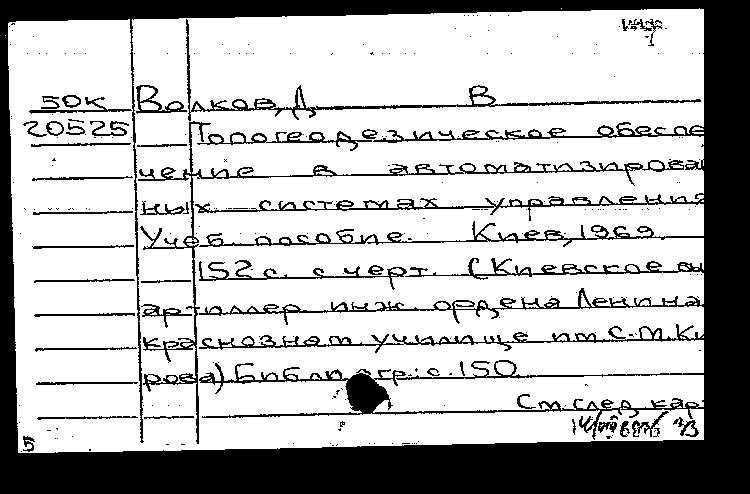 50К Волков, Д В
20525 Топогеодезическое обеспе
чение в автоматизирован
ных системах управления
Учеб. пособие. Киев, 1969
152 с. с черт. (Киевское вы
артиллер инж ордена Ленина
краснознам училище им С.М.Ки
рова) Библиогр: с. 150
См след кар
5